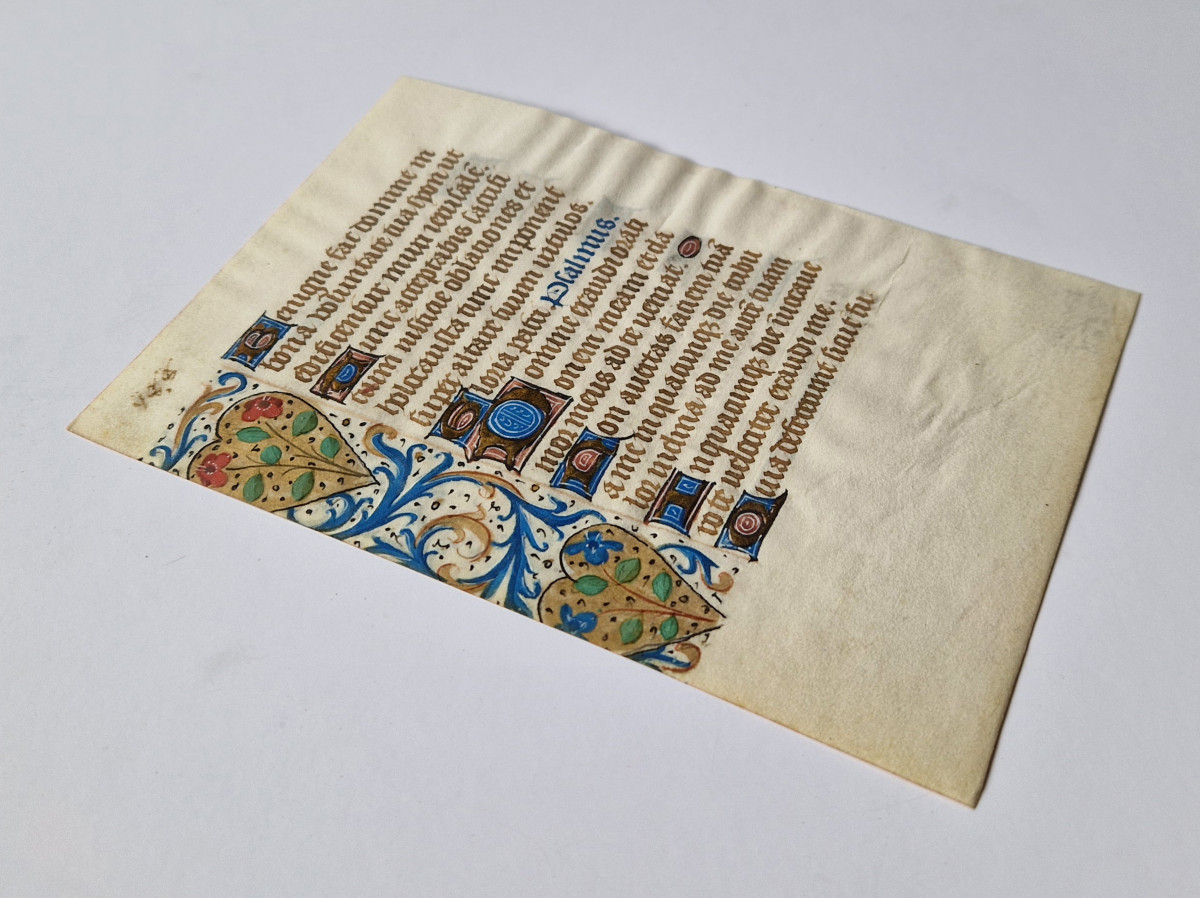 Benigne fac domine in
bona voluntate tua syon ut
edificentur muri iherusalē.
Tunc acceptabis sacrifi
cium iusticie oblationes et
holocausta tunc imponent
super altare tuum vitulos.
Gloria patri Psalmus.
Domine exaudi oratiō
onem meam et cla
mor meus ad te veniat
Non avertas faciem tuā
a me in quacumq3 die tribu
lor inclina ad me aurē tuam
In quacumq3 die invoca
vero te velociter exaudi me.
Quia defecerunt sicut fu